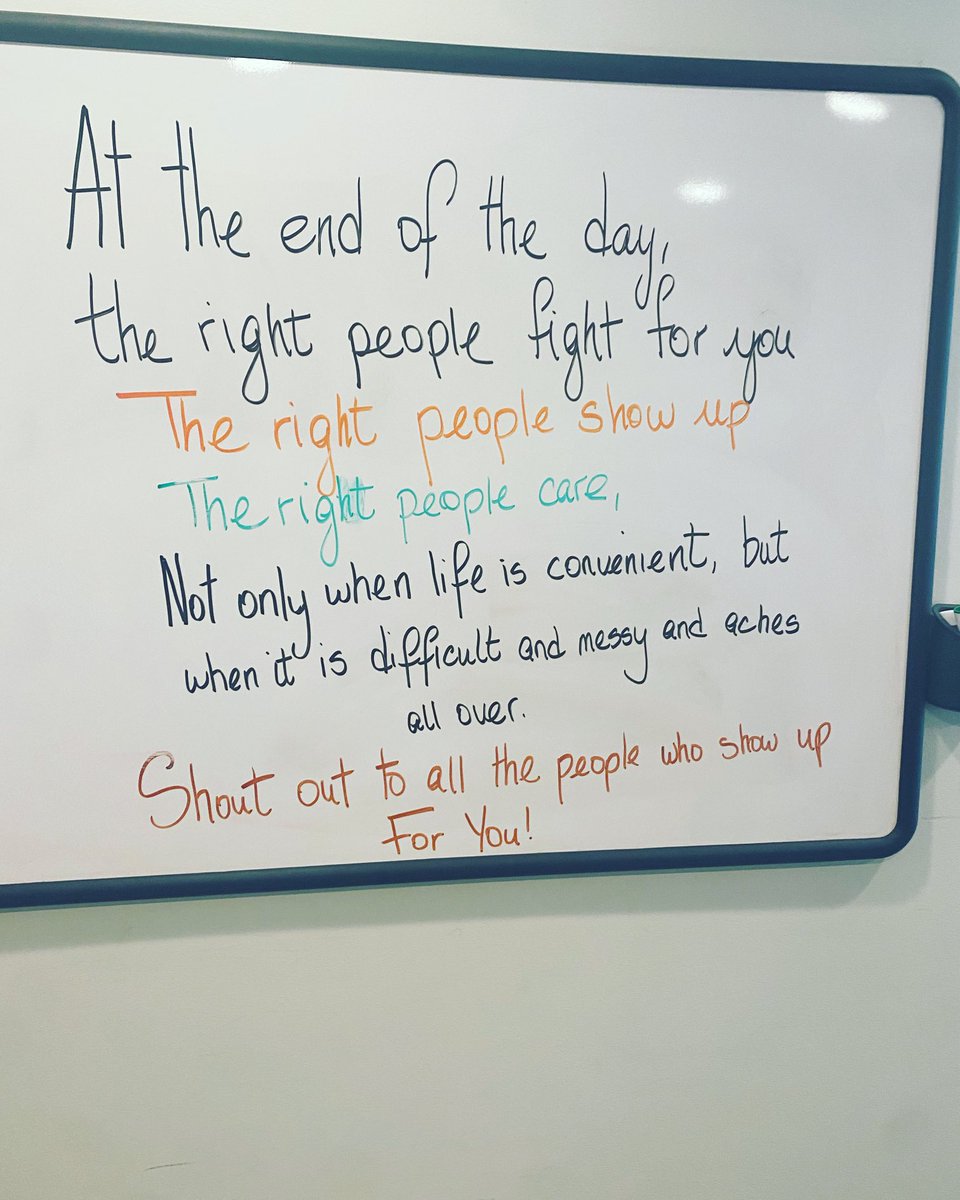 At the end of the day,
the right people fight for you
The right people show up
The right people care,
Not only when life is convenient, but
when it is difficult and messy and aches
all over.
Shout out to all the people who show up
For You!